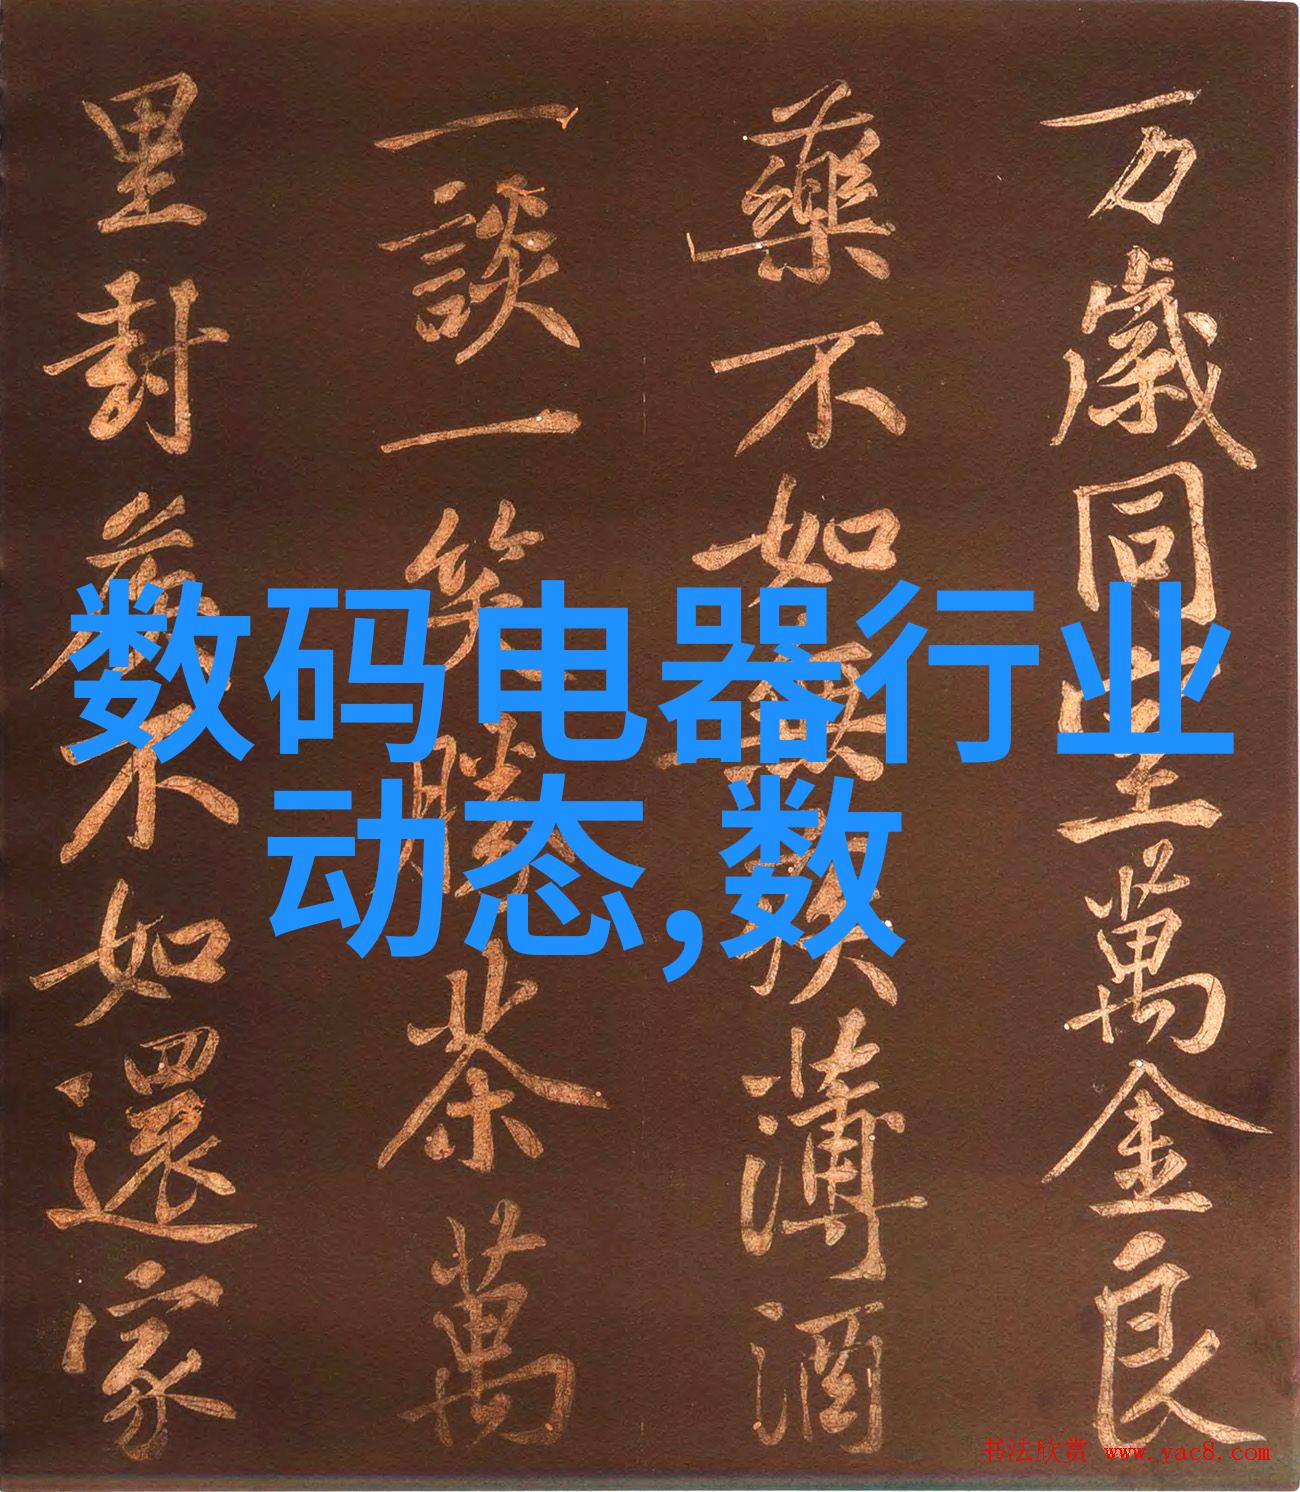 万歲同堂萬金良
藥不如無疾薄酒
一談一笑勝茶萬
里封矦不如還家
数码电器行业
动态,数
书法欣赏 www.yac8.com